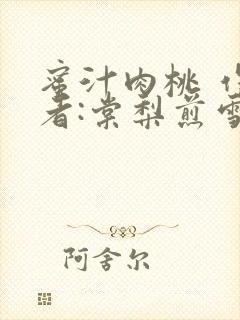 蜜汁肉桃 作
者:棠梨煎雪
阿舍尔